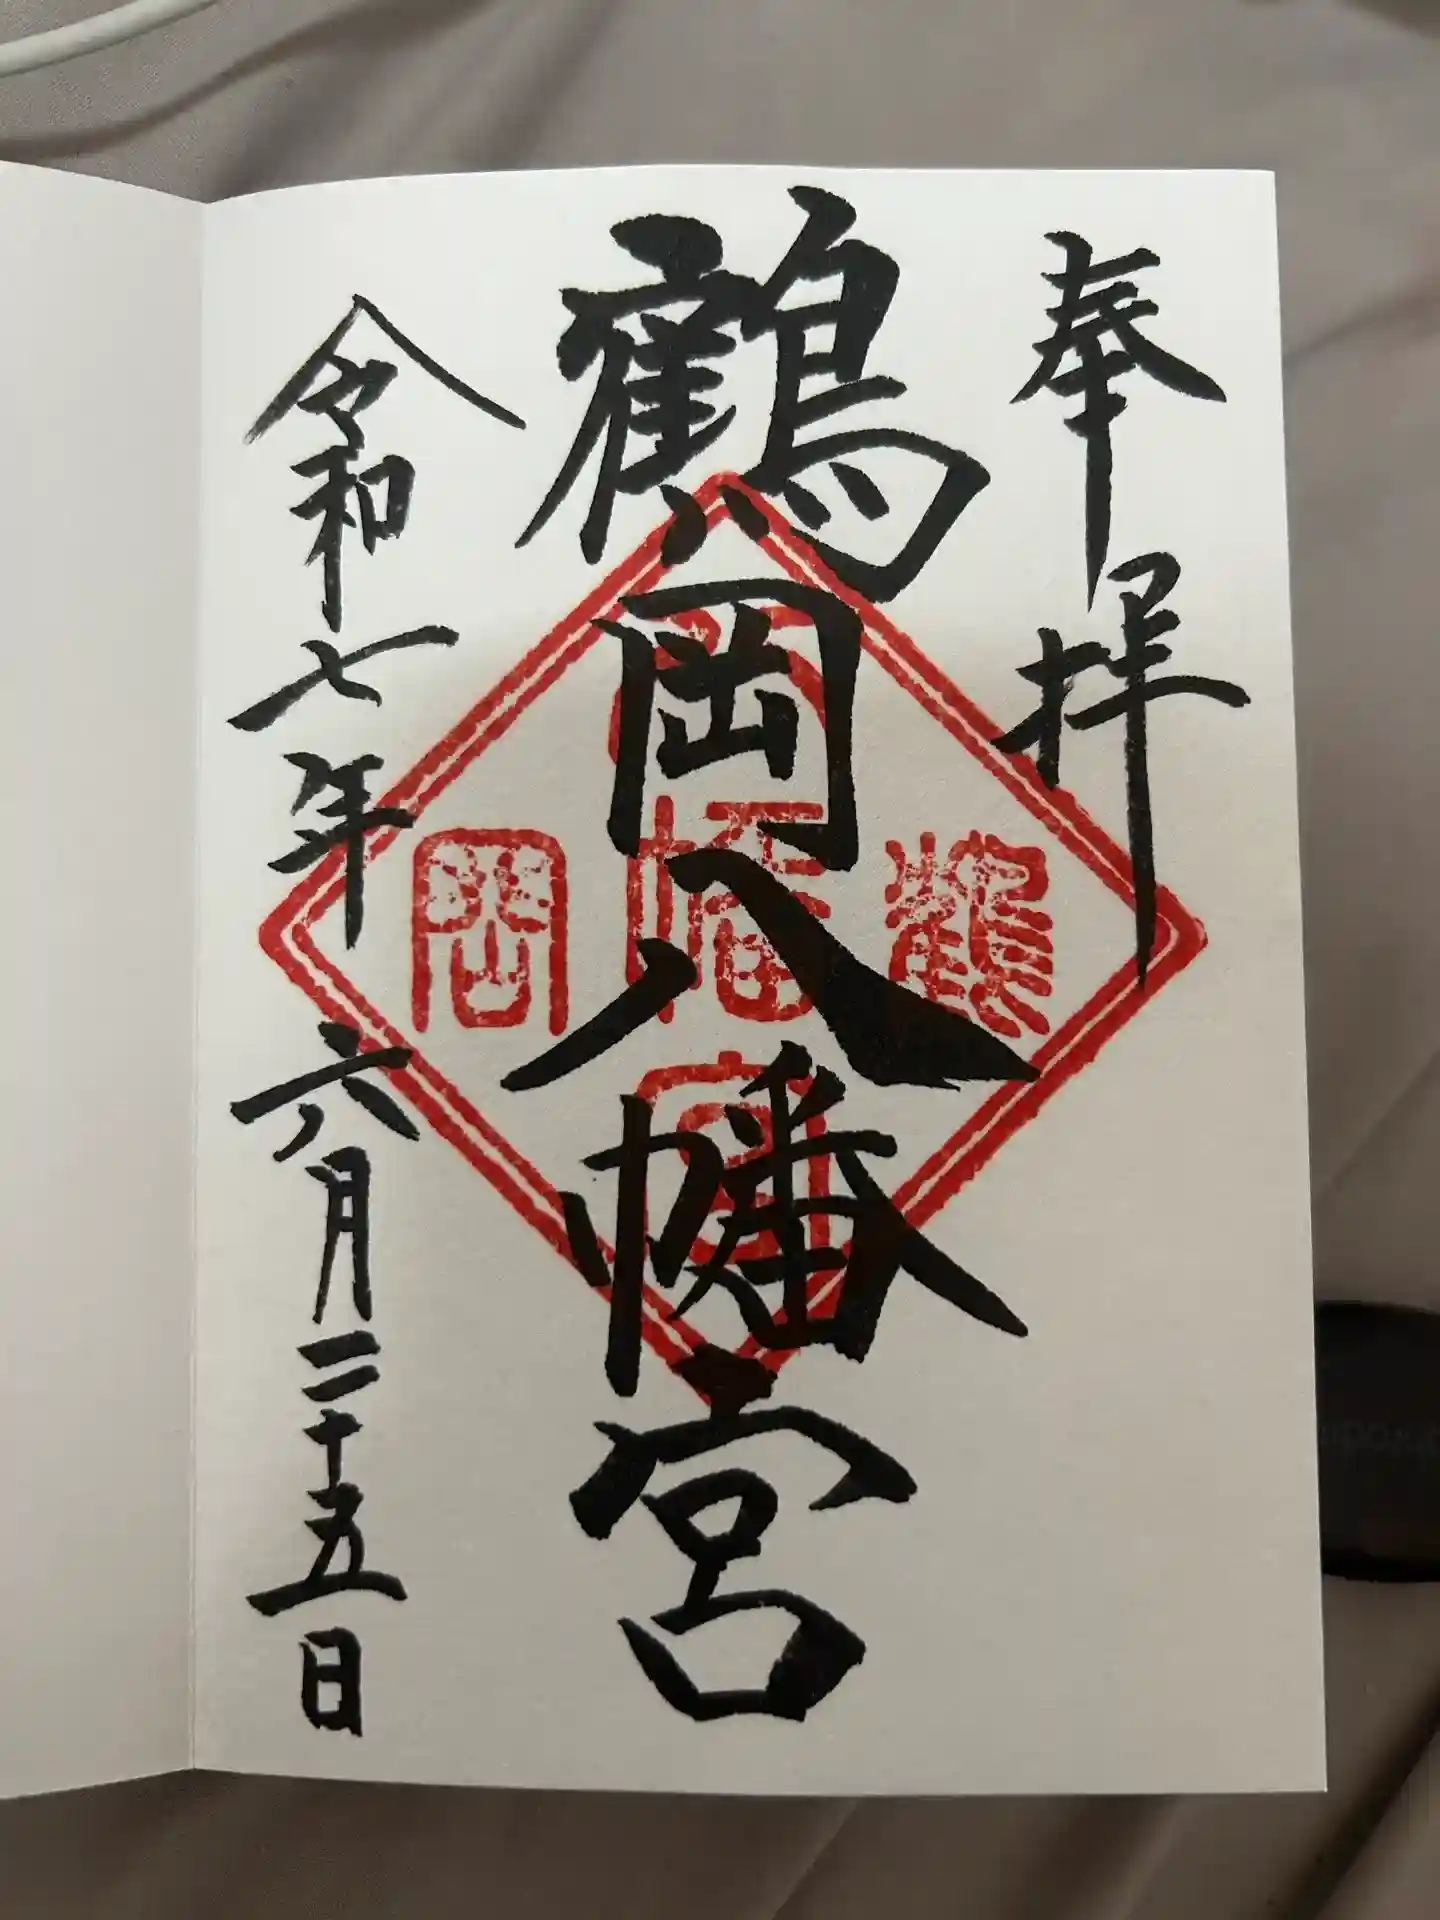 奉拝
鶴岡八幡宮
令和七年六月二十五日
鶴
八幡宮
岡